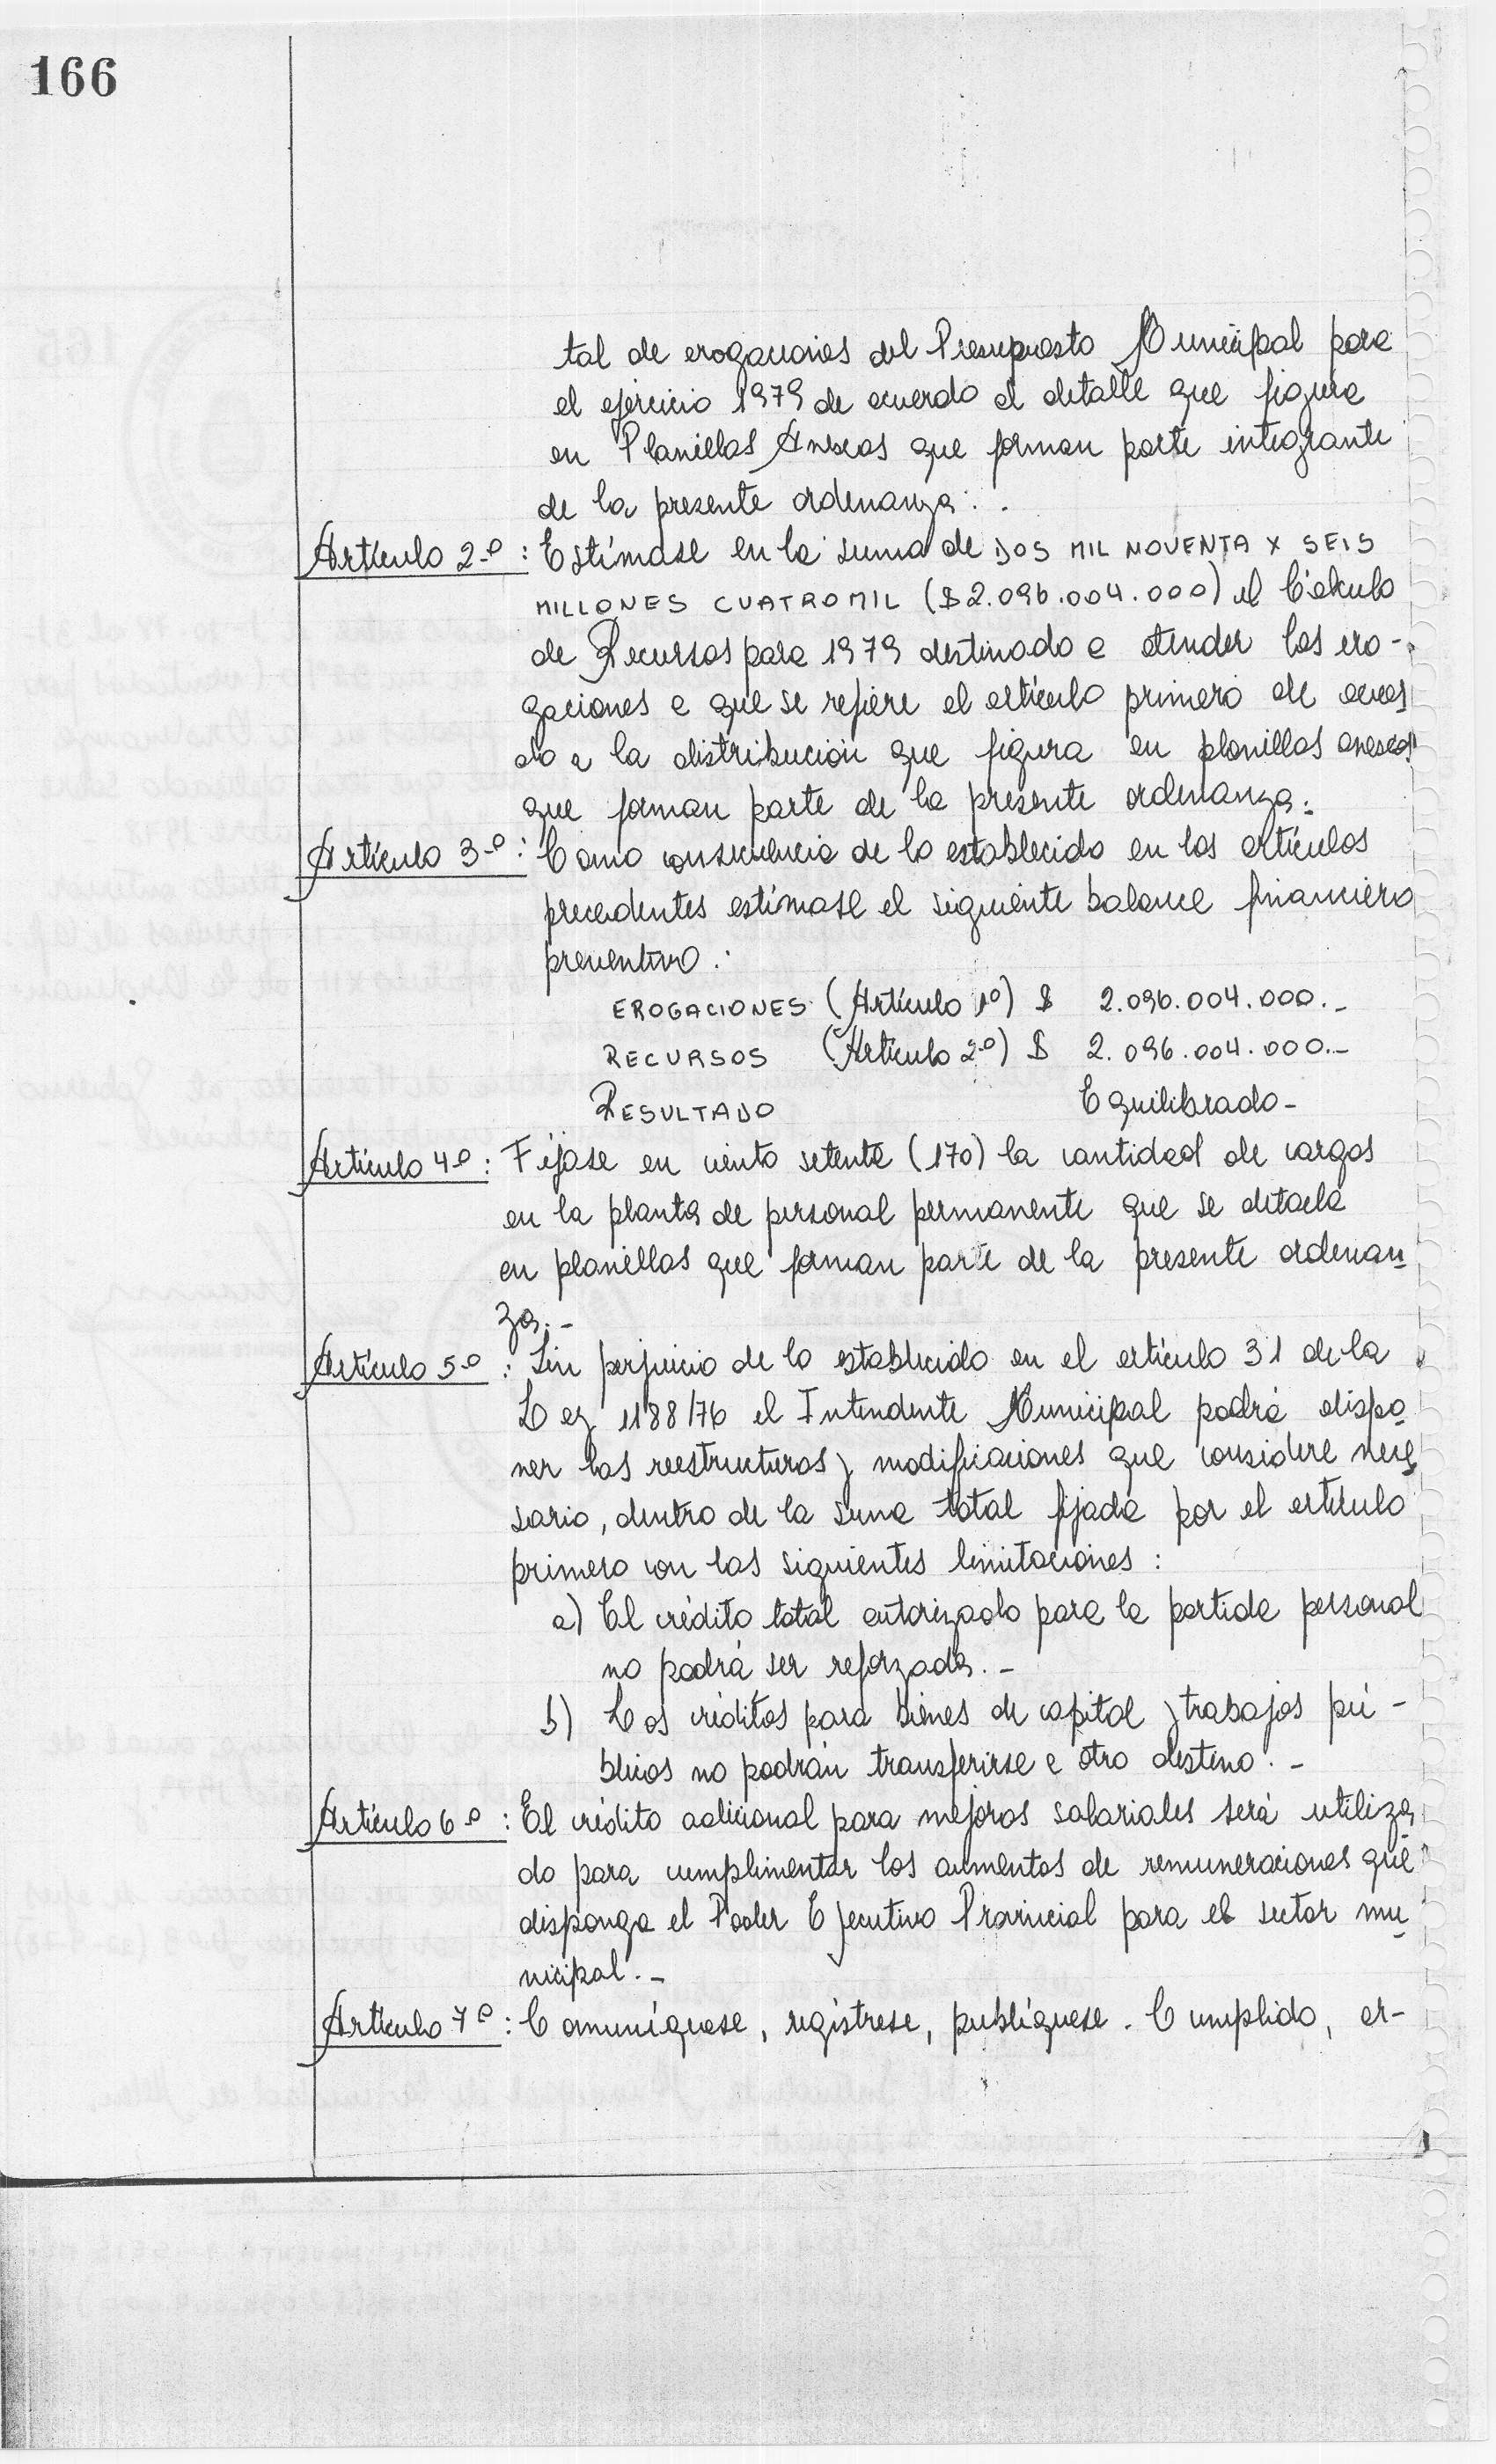 166
tal de erogaciones del Presupuesto Municipal para
el ejercicio 1979 de acuerdo al detalle que figura
en Planillas Anexas que forman parte integrante
de la presente ordenanza.
Artículo 2º: Estímase en la suma de DOS MIL NOVENTA Y SEIS
MILLONES CUATRO MIL ($2.096.004.000) el Cálculo
de Recursos para 1979 destinado a atender las ero-
gaciones a que se refiere el artículo primero de acuer
do a la distribución que figura en planillas anexas
que forman parte de la presente ordenanza.
Artículo 3º: Como consecuencia de lo establecido en los artículos
precedentes estímase el siguiente balance financiero
preventivo.:
EROGACIONES (Artículo 1º) $ 2.096.004.000.-
RECURSOS (Artículo 2º) $ 2.096.004.000.-
RESULTADO Equilibrado-
Artículo 4º: Fíjase en ciento setenta (170) la cantidad de cargos
en la planta de personal permanente que se detalla
en planillas que forman parte de la presente ordenan
za.-
Artículo 5º: Sin perjuicio de lo establecido en el artículo 31 de la
Ley 1188/76 el Intendente Municipal podrá dispo
ner las reestructuras y modificaciones que considere nece
sario, dentro de la suma total fijada por el artículo
primero con las siguientes limitaciones:
a) El crédito total autorizado para la partida personal
no podrá ser reforzada.-
b) Los créditos para bienes de capital y trabajos pú-
blicos no podrán transferirse a otro destino.-
Artículo 6º: El crédito adicional para mejoras salariales será utiliza
do para cumplimentar los aumentos de remuneraciones que
disponga el Poder Ejecutivo Provincial para el sector mu
nicipal.-
Artículo 7º: Comuníquese, regístrese, publíquese. Cumplido, ar-